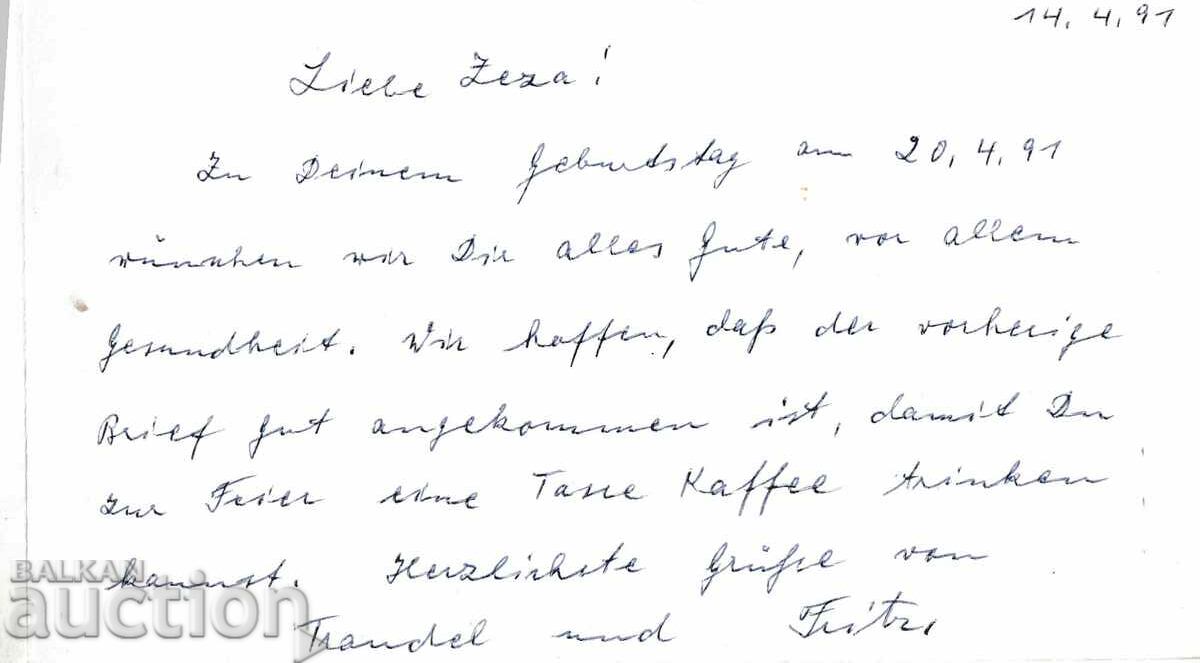 14. 4. 91
Liebe Zeza!
Zu Deinem Geburtstag am 20. 4. 91
wünschen wir Dir alles Gute, vor allem
Gesundheit. Wir hoffen, daß der vorherige
Brief gut angekommen ist, damit Du
zur Feier eine Tasse Kaffee trinken
kannst. Herzlichste Grüße von
Traudel und Fritz.
BALKAN
auction